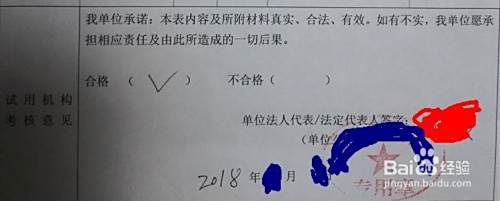 我单位承诺：本表内容及所附材料真实、合法、有效。如有不实，我单位愿承
担相应责任及由此所造成的一切后果。
合格 （ √ ） 不合格（ ）
试用机构
考核意见
单位法人代表/法定代表人签字：
（单位
专用章
2018 年 月
Baidu 经验
jingyan.baidu.com